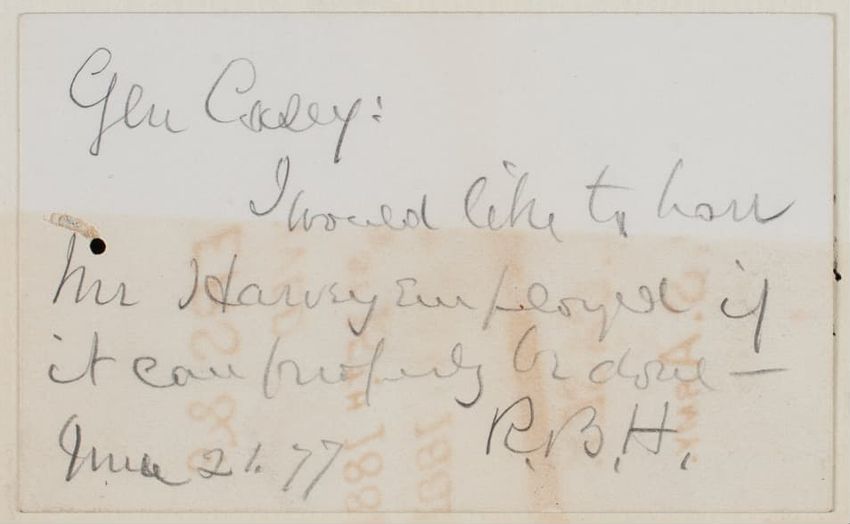 Gen Casey:
I would like to have
Mr Harvey employed if
it can properly be done —
June 21. 77 R.B.H.